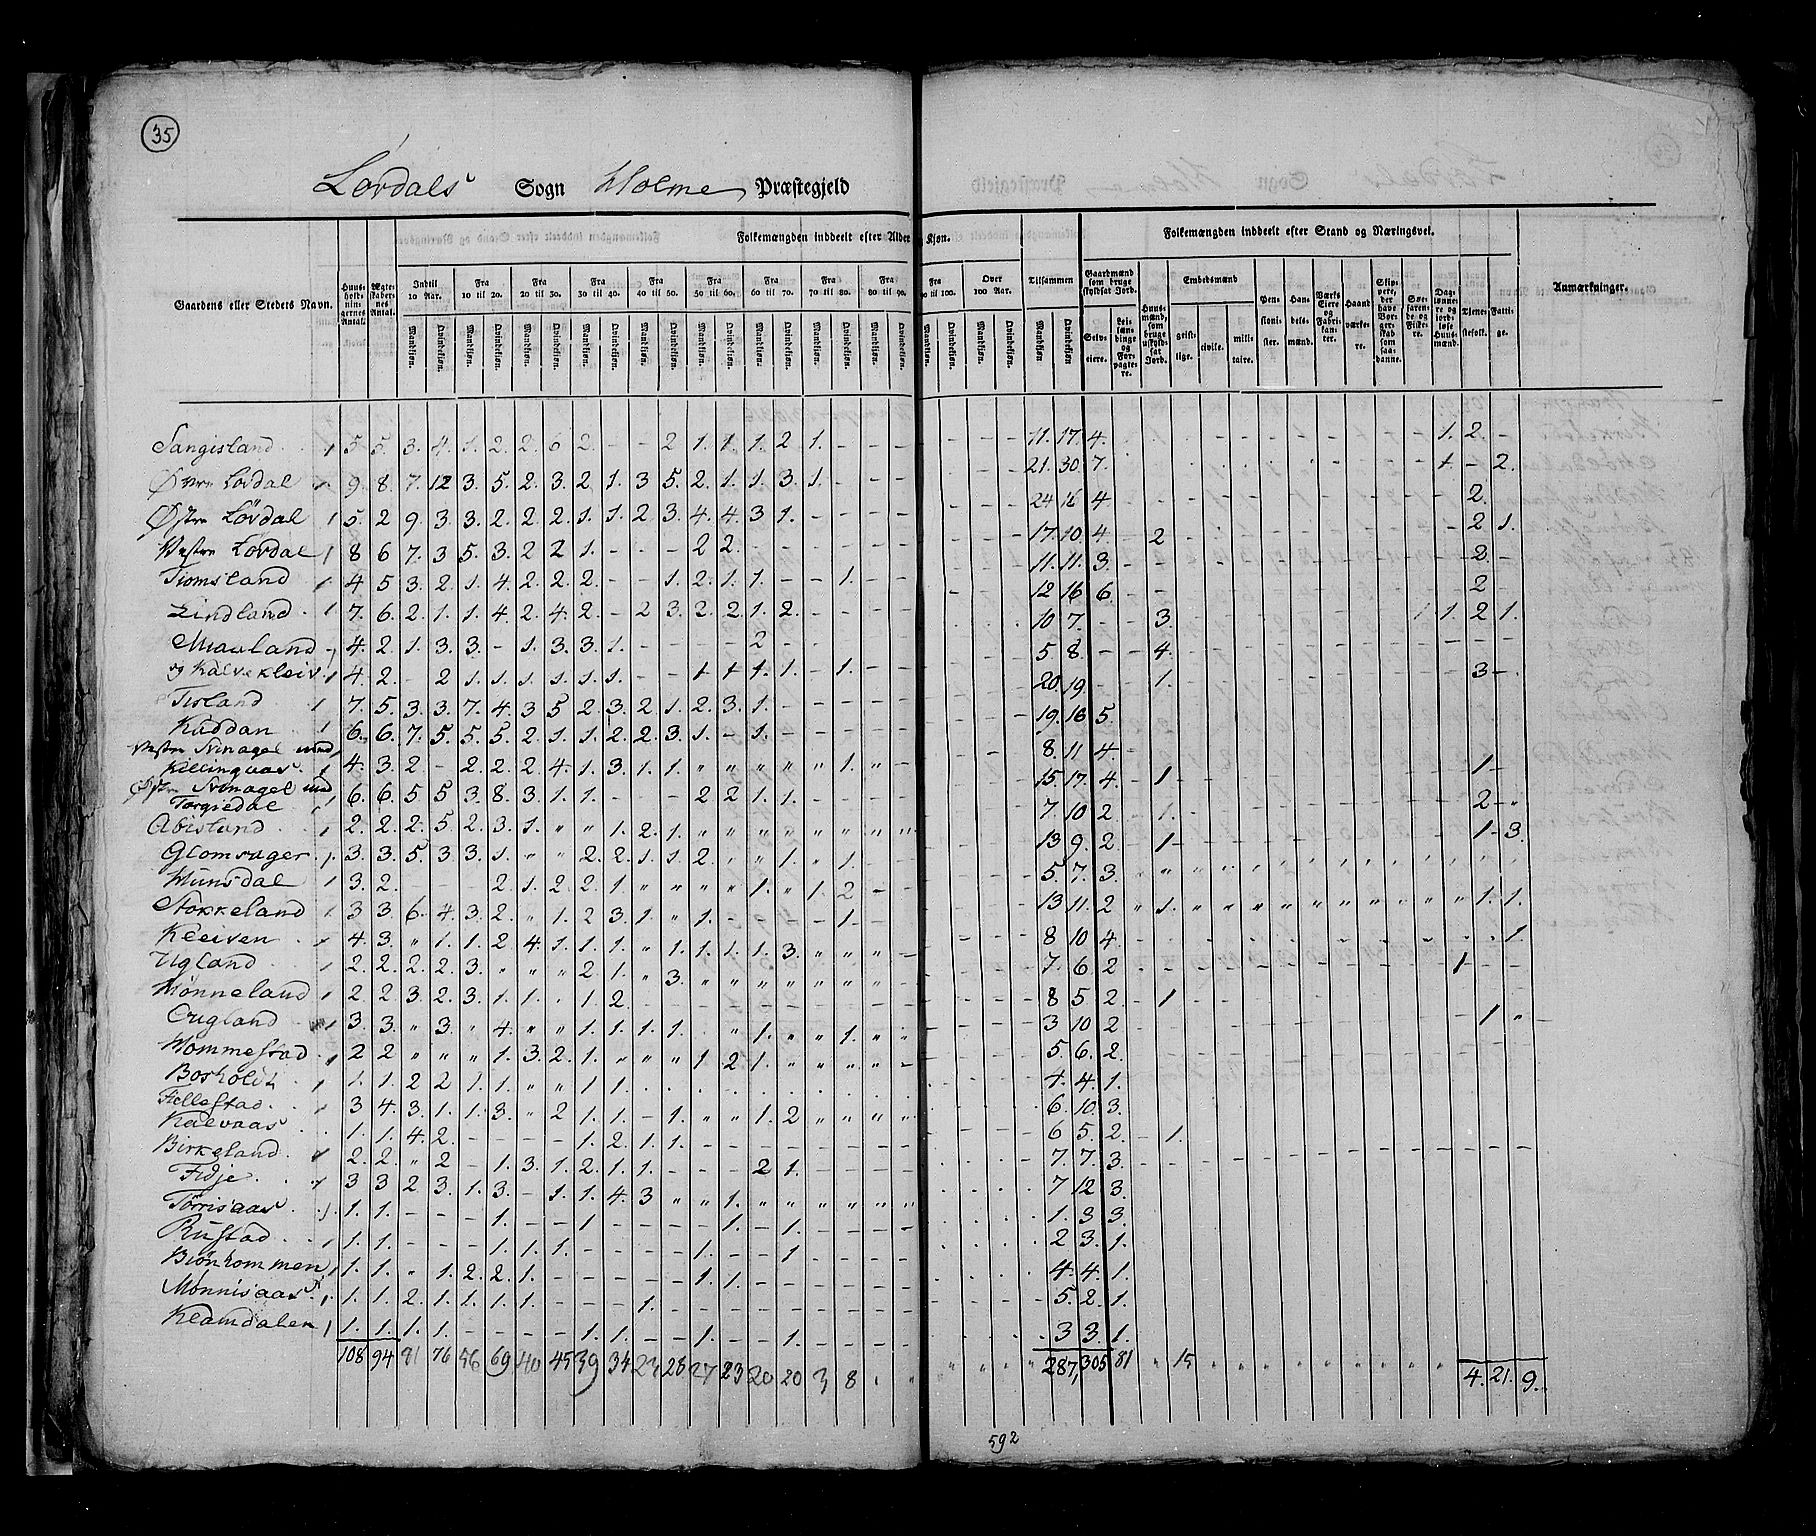 35
Løvdals Sogn Holme Præstegjeld
Folkemængden inddeelt efter Alder og Kjøn.
Folkemængden inddeelt efter Stand og Næringsvei.
Gaardens eller Stedets Navn.
Huusholdningernes Antal.
Ægteskabernes Antal.
Indtil 10 Aar.
Fra 10 til 20.
Fra 20 til 30.
Fra 30 til 40.
Fra 40 til 50.
Fra 50 til 60.
Fra 60 til 70.
Fra 70 til 80.
Fra 80 til 90.
Fra 90 til 100.
Over 100 Aar.
Tilsammen
Mandkjøn.
Qvindekjøn.
Gaardmænd som bruge skyldsat Jord.
Selveiere.
Leilændinge og Forpagtere.
Huusmænd, som bruge uskyldsat Jord.
Embedsmænd
geistlige.
civile.
militaire.
Pensionister.
Handelsmænd.
Værks Eiere og Fabrikanter.
Haandværkere.
Skippere, der have Borgerskab som saadanne.
Søefarende og Fiskere.
Daglønnere og jordløse Huusmænd.
Tjenestefolk.
Fattige.
Anmærkninger.
Sangisland 5. 5. 3. 4. 1. 2. 2. 6 2. - - 2 1. 1. 1. 2. 1. 11. 17. 4. 1. 2. -
Øvre Løvdal 9. 8. 7. 12 3. 5. 2. 3. 2 1. 3 5. 2. 1. 1. 3. 1. 21. 30. 7. 1 - 2.
Østre Løvdal 5. 2 9. 3. 3. 2. 2. 2. 1. 1. 2 3. 4. 4. 3 1. 24 16 4 2.
Vestre Løvdal 8 6 7. 3 5. 3. 2 2 1. - - - 2 2. 17. 10. 4 - 2 2 1.
Tiomsland 4 5 3. 2. 1. 4. 2. 2. 2. - - 1. 2. 1. 1. - - 1. 11. 11. 3. 2.
Lindland 7. 6. 2. 1. 1. 4. 2. 4. 2. - 2 3. 2. 2. 1. 2. 12 16 6. 2
Miauland 4. 2. 1. 3. 3. - 1. 3. 3. 1. - - - - 2 10 7. - - 3. 1. 2 1.
og Kalvekleiv 4. 2. - 2 1. 1. 1. 1. 1. 1. - - 1 1 1. 1. - 1. 5 8. - - 4.
Tisland 7. 5. 3. 3. 7. 4. 3 5 2. 3. 2. 1. 2. 3. 1. 20. 19 - - 1. 3
Kuddan 6. 6. 7. 5 5. 5. 2. 1. 1. 2. 2. 3. 1. - 1. 19. 16 5.
Vestre Svinagel med Killingvaas 4. 3. 2 - 2. 2. 2. 4. 1. 3. 1. 1. " " " " 1. 8. 11 4.
Østre Svinagel med Torgiedal 6. 6. 5 5 3. 8. 3. 1. 1. - - - 2 2 1. 1. 15. 17. 4 - 1 1
Abisland 2. 2. 2. 5. 2. 3. 1. " " 1. 2. 1. 7. 10 2. - 1. 2
Glomsager 3. 3. 5. 3 3. 1. " " 2. 2. 1. 1. 2. " " 1. " 1. 13 9. 2. - 1 1 3.
Hunsdal 3. 2. - - - 2. 1. 2 2. 1. " " " " 1. " 1. 2 5 7. 3.
Stokkeland 3 3. 6. 4. 3. 2. " 1. 2 3. 1. " 1. - - - - 1. 13. 11. 2 " 1. 1. 1.
Kleiven 4. 3. " 1. 1. 2 4. 1. 1. 1. " 1. 1. 1. 1. 3. 8 10 4. 1.
Ugland 2. 2. 2. 2. 3. " " " 2. 1. " 3. 7. 6. 2 1
Hønneland 2. 2. 3. 2. 3. 1. 1. " 1. 2. 8 5 2. - 1
Øugland 3. 3. " 3. " 4. " " 1. 1. 1. 1. " 1. " " 1. 3 10 2 1
Hommestad 2 2 " " " 1. 3. 2. 1. " " " 1 2 1. 5. 6. 2.
Bosholdt 1. 1. 2 2 1. 1. " " 1 1. 4. 4. 1.
Fiellestad 3 4. 3. 1. 1. 3. " 2 1. 1. - 1. " " 1. 2 6. 10. 3.
Kalvaas 1. 1. 4. 2. - - - - 1. 2. 1. 1. 6 5. 2. - 1.
Birkeland 2. 2. " 2 - 1. 3. 1. 2. 1. 1. - - - 2 1. 7. 7. 3.
Fidje 3 3 2 3. 1. 3. - 1. 1. 4. 3 " " 1. 7 12 3.
Tørrisaas 1. 1. - - - 1. - - 1 - - - - 1. - 1. 1. 3 3.
Rustad 1. 1. - - - 1. 1. 1. - - - - 1. - - 1 2 3. 1.
Biønkommen 1. 1. " 1. 2. 2. 1. - - - - - 1. 1. 4. 4. 1.
Mønnisaas 1. 1. 2. 1. 1. 1. 1. - - - 1. 5. 2. 1.
Klamdalen 1. 1. 1. 1. - - - - 1 1. - - 1. - - 1. 3 3. 1.
108 94 81 76 56 69 40 45 39 34 23 28 27 23 20 20 3 8 287, 305 81 " 15 4. 21. 9.
592